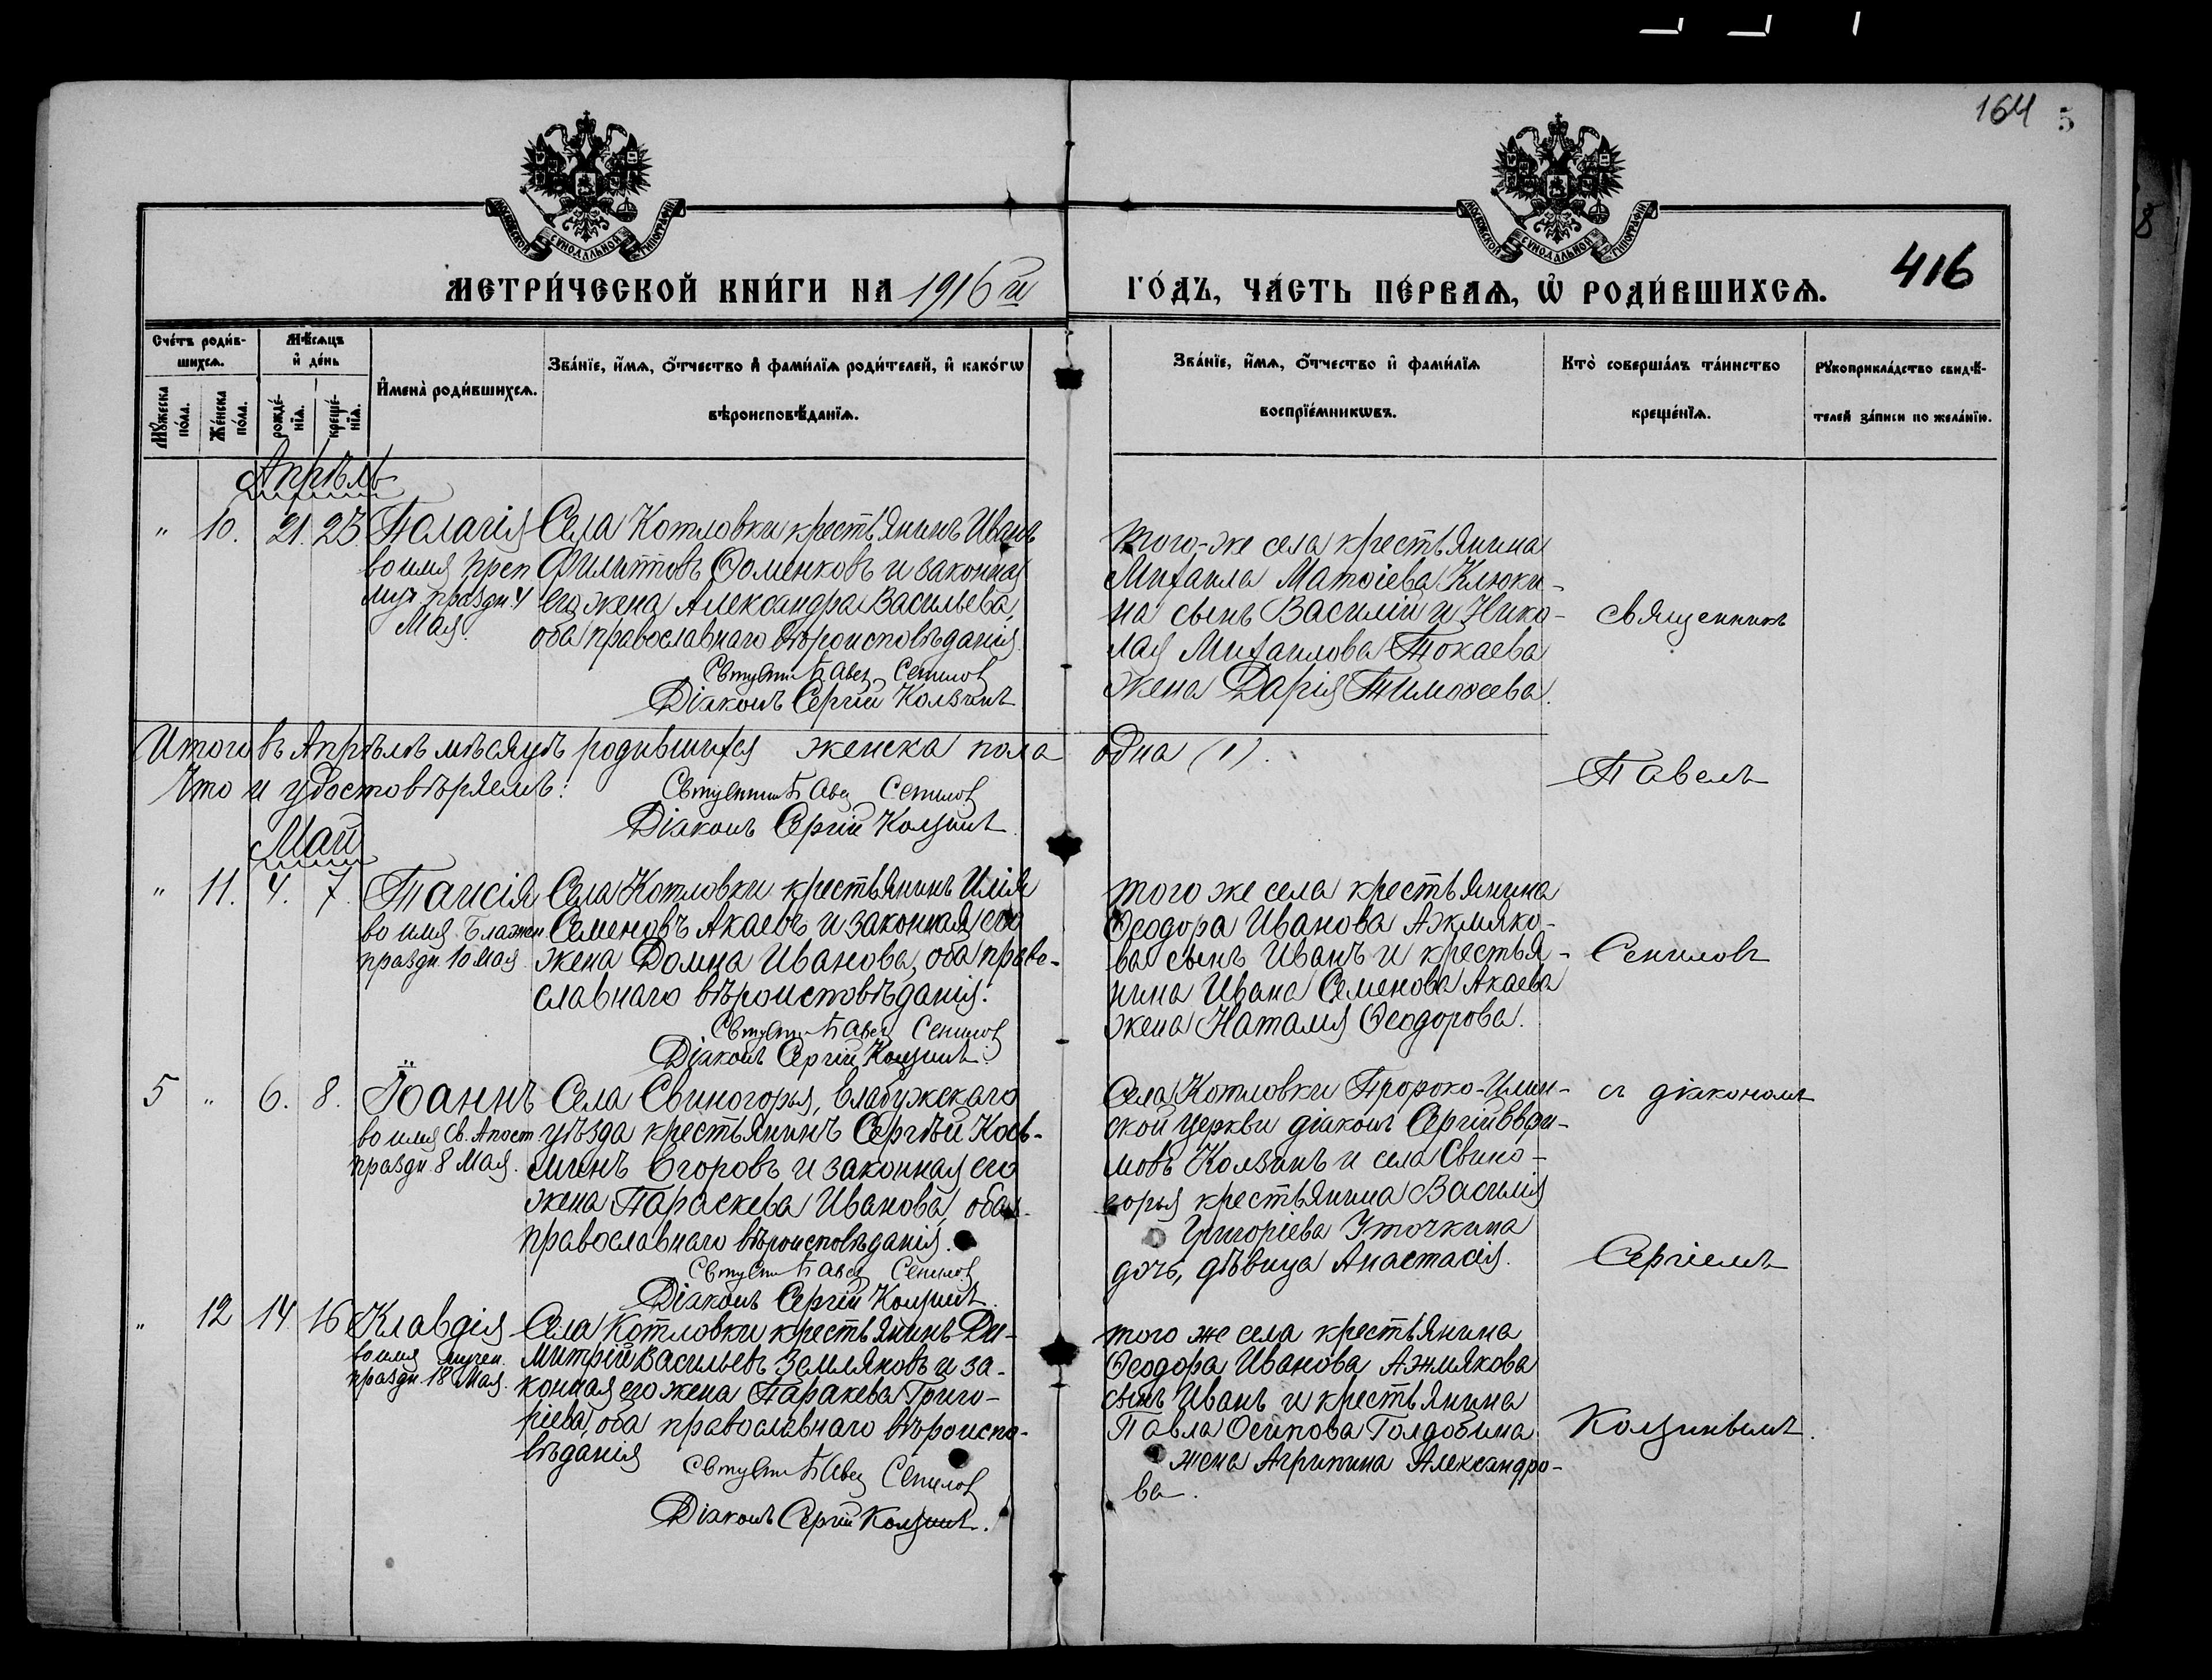 164 5
8
МОСКОВСКОЙ СѴНОДАЛЬНОЙ ТИПОГРАФІИ
МОСКОВСКОЙ СѴНОДАЛЬНОЙ ТИПОГРАФІИ
416
МЕТРИ́ЧЕСКОЙ КНИ́ГИ НА 1916 й ГО́ДЪ, ЧА́СТЬ ПЕ́РВАѦ, Ѡ҆ РОДИ́ВШИХСѦ.
Сче́тъ роди́в-
шихсѧ.
Мѣ́сѧцъ
и҆ де́нь
Мꙋ́жеска по́ла.
Же́нска по́ла.
рожде́-
нїѧ.
креще́-
нїѧ.
И҆мена̀ роди́вшихсѧ.
Зва́нїе, и҆́мѧ, ѻ҆́тчество и҆ фами́лїѧ роди́телей, и҆ како́гѡ
вѣроисповѣ́данїѧ.
Зва́нїе, и҆́мѧ, ѻ҆́тчество и҆ фами́лїѧ
воспрїе́мникѡвъ.
Кто̀ соверша́лъ та́инство
креще́нїѧ.
Рꙋкоприкла́дство свидѣ́-
телей за́писи по жела́нїю.
Апрѣль
" 10. 21. 23. Пелагія Села Котловки крестьянинъ Иванъ
во имя преп Филипповъ Фоменковъ и законная
муч праздн. 4 его жена Александра Васильева,
Мая. оба православнаго вѣроисповѣданія.
Священникъ Павел Сенилов
Діаконъ Сергій Колзинъ
того-же села крестьянина
Михаила Матѳіева Клюки-
на сынъ Василій и Нико-
лая Михаилова Токаева
жена Дарія Тимоѳеева.
Священникъ
Итого въ Апрѣлѣ мѣсяцѣ родившихся женска пола одна (1).
Что и удостовѣряемъ: Священникъ Павел Сенилов
Діаконъ Сергій Колзинъ
Павелъ
Май
" 11. 4. 7. Таисія Села Котловки крестьянинъ Илія
во имя Блажен Семеновъ Акаевъ и законная его
праздн 10 Мая жена Домна Иванова, оба право-
славнаго вѣроисповѣданія.
Священникъ Павел Сенилов
Діаконъ Сергій Колзинъ.
того же села крестьянина
Ѳеодора Иванова Ажмяко-
ва сынъ Иванъ и крестья-
нина Ивана Семенова Акаева
жена Наталія Ѳеодорова.
Сениловъ
5 " 6. 8. Іоаннъ Села Свиногорья, Елабужскаго
во имя Св. Апост уѣзда крестьянинъ Сергѣй Кось-
праздн 8 Мая. минъ Егоровъ и законная его
жена Параскева Иванова, оба
православнаго вѣроисповѣданія.
Священникъ Павел Сенилов
Діаконъ Сергій Колзинъ.
Села Котловки Пророко-Илин-
ской церкви діаконъ Сергій Евѳи-
мовъ Колзинъ и села Свино-
горья крестьянина Василія
Григоріева Уточкина
дочь, дѣвица Анастасія.
съ діакономъ
Сергіемъ
" 12 14 16 Клавдія Села Котловки крестьянинъ Ди-
во имя мучен. митрій Васильевъ Земляковъ и за-
праздн 18 Мая. конная его жена Паракева Григо-
ріева, оба православнаго вѣроиспо-
вѣданія Священникъ Павел Сенилов
Діаконъ Сергій Колзинъ.
того же села крестьянина
Ѳеодора Иванова Ажмякова
сынъ Иванъ и крестьянина
Павла Осипова Голдобина
жена Агрипина Александро-
ва.
Колзинымъ.